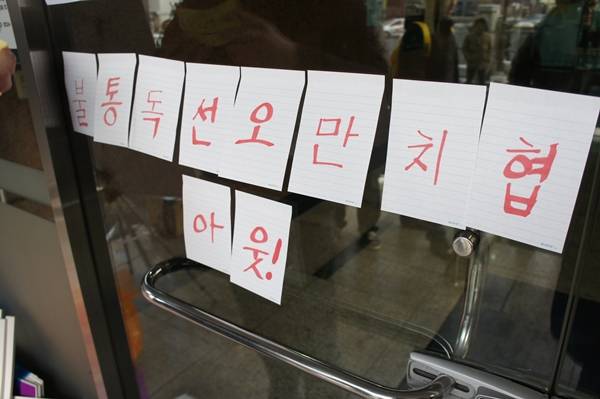 불통독선오만치협
아웃!